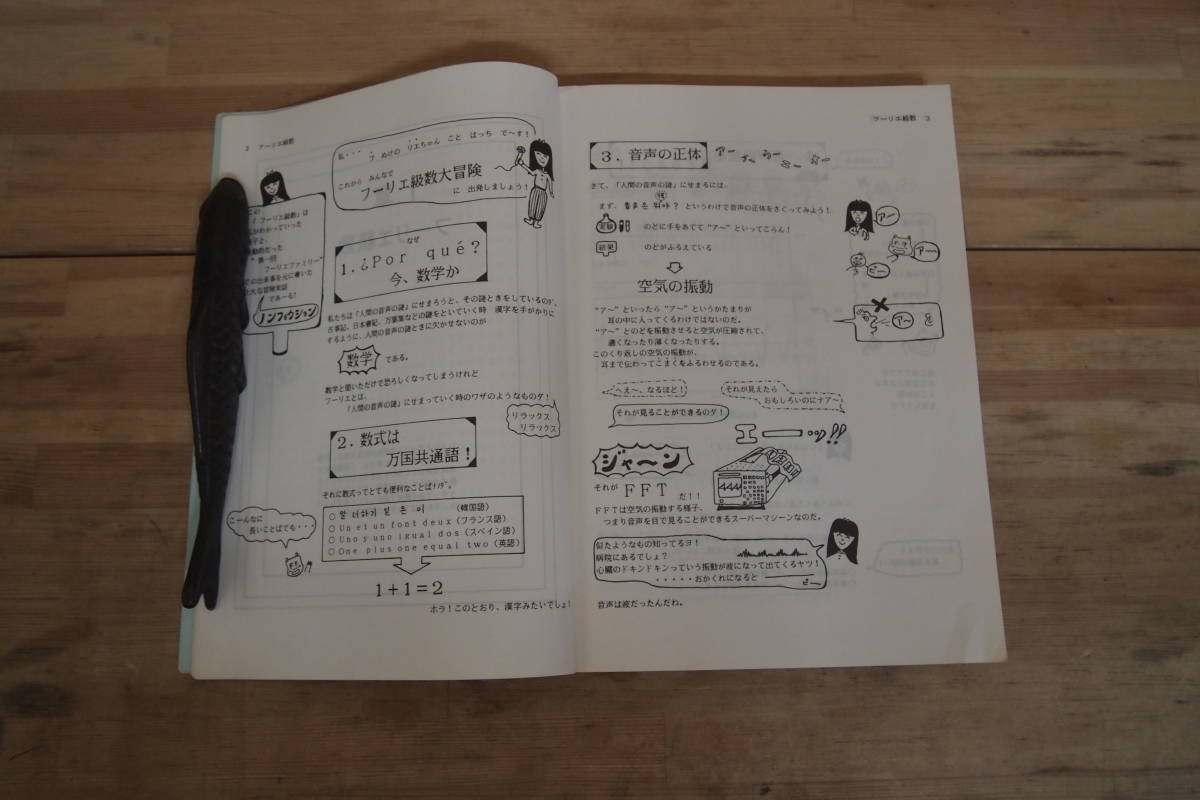 2 フーリエ級数
私・・・フ ぬけの リエちゃん こと はっち で〜す!
これから みんなで
フーリエ級数大冒険
に 出発しましょう!
この
「フーリエ級数」は
がわかっていった
様子と、
動的だった
"第一回
フーリエファミリー"
での出来事を元に書いた
大な冒険実話
であーる!
ノンフィクション
なぜ
1.¿Por qué?
今、数学か
私たちは「人間の音声の謎」にせまろうと、その謎ときをしているのダ。
古事記、日本書紀、万葉集などの謎をといていく時 漢字を手がかりに
するように、人間の音声の謎ときに欠かせないのが
数学 である。
数学と聞いただけで恐ろしくなってしまうけれど
フーリエとは、
「人間の音声の謎」にせまっていく時のワザのようなものダ!
リラックス
リラックス
2.数式は
万国共通語!
それに数式ってとても便利なことば!ノダ。
こーんなに
長いことばでも・・・
(韓国語)
○Un et un font deux(フランス語)
○Uno y uno igual dos(スペイン語)
○One plus one equal two(英語)
1+1=2
ホラ!このとおり、漢字みたいでしょ!
フーリエ級数 3
3.音声の正体
さて、「人間の音声の謎」にせまるには、
まず、 というわけで音声の正体をさぐってみよう!
実験 のどに手をあてて "ア〜" といってごらん!
結果 のどがふるえている
空気の振動
"ア〜" といったら "ア〜" というかたまりが
耳の中に入ってくるわけではないのだ。
"ア〜" とのどを振動させると空気が圧縮されて、
濃くなったり薄くなったりする。
このくり返しの空気の振動が、
耳まで伝わってこまくをふるわせるのである。
アー
アー
ビー
アー
へえ〜、なるほど!
それが見えたら
おもしろいのにナア〜
それが見ることができるのダ!
エーーッ!!
ジャ〜ン
それが FFT だ!!
FFTは空気の振動する様子、
つまり音声を目で見ることができるスーパーマシーンなのだ。
似たようなもの知ってるヨ!
病院にあるでしょ?
心臓のドキンドキンっていう振動が波になって出てくるヤツ!
・・・・・おかくれになると
ピー
音声は波だったんだね。